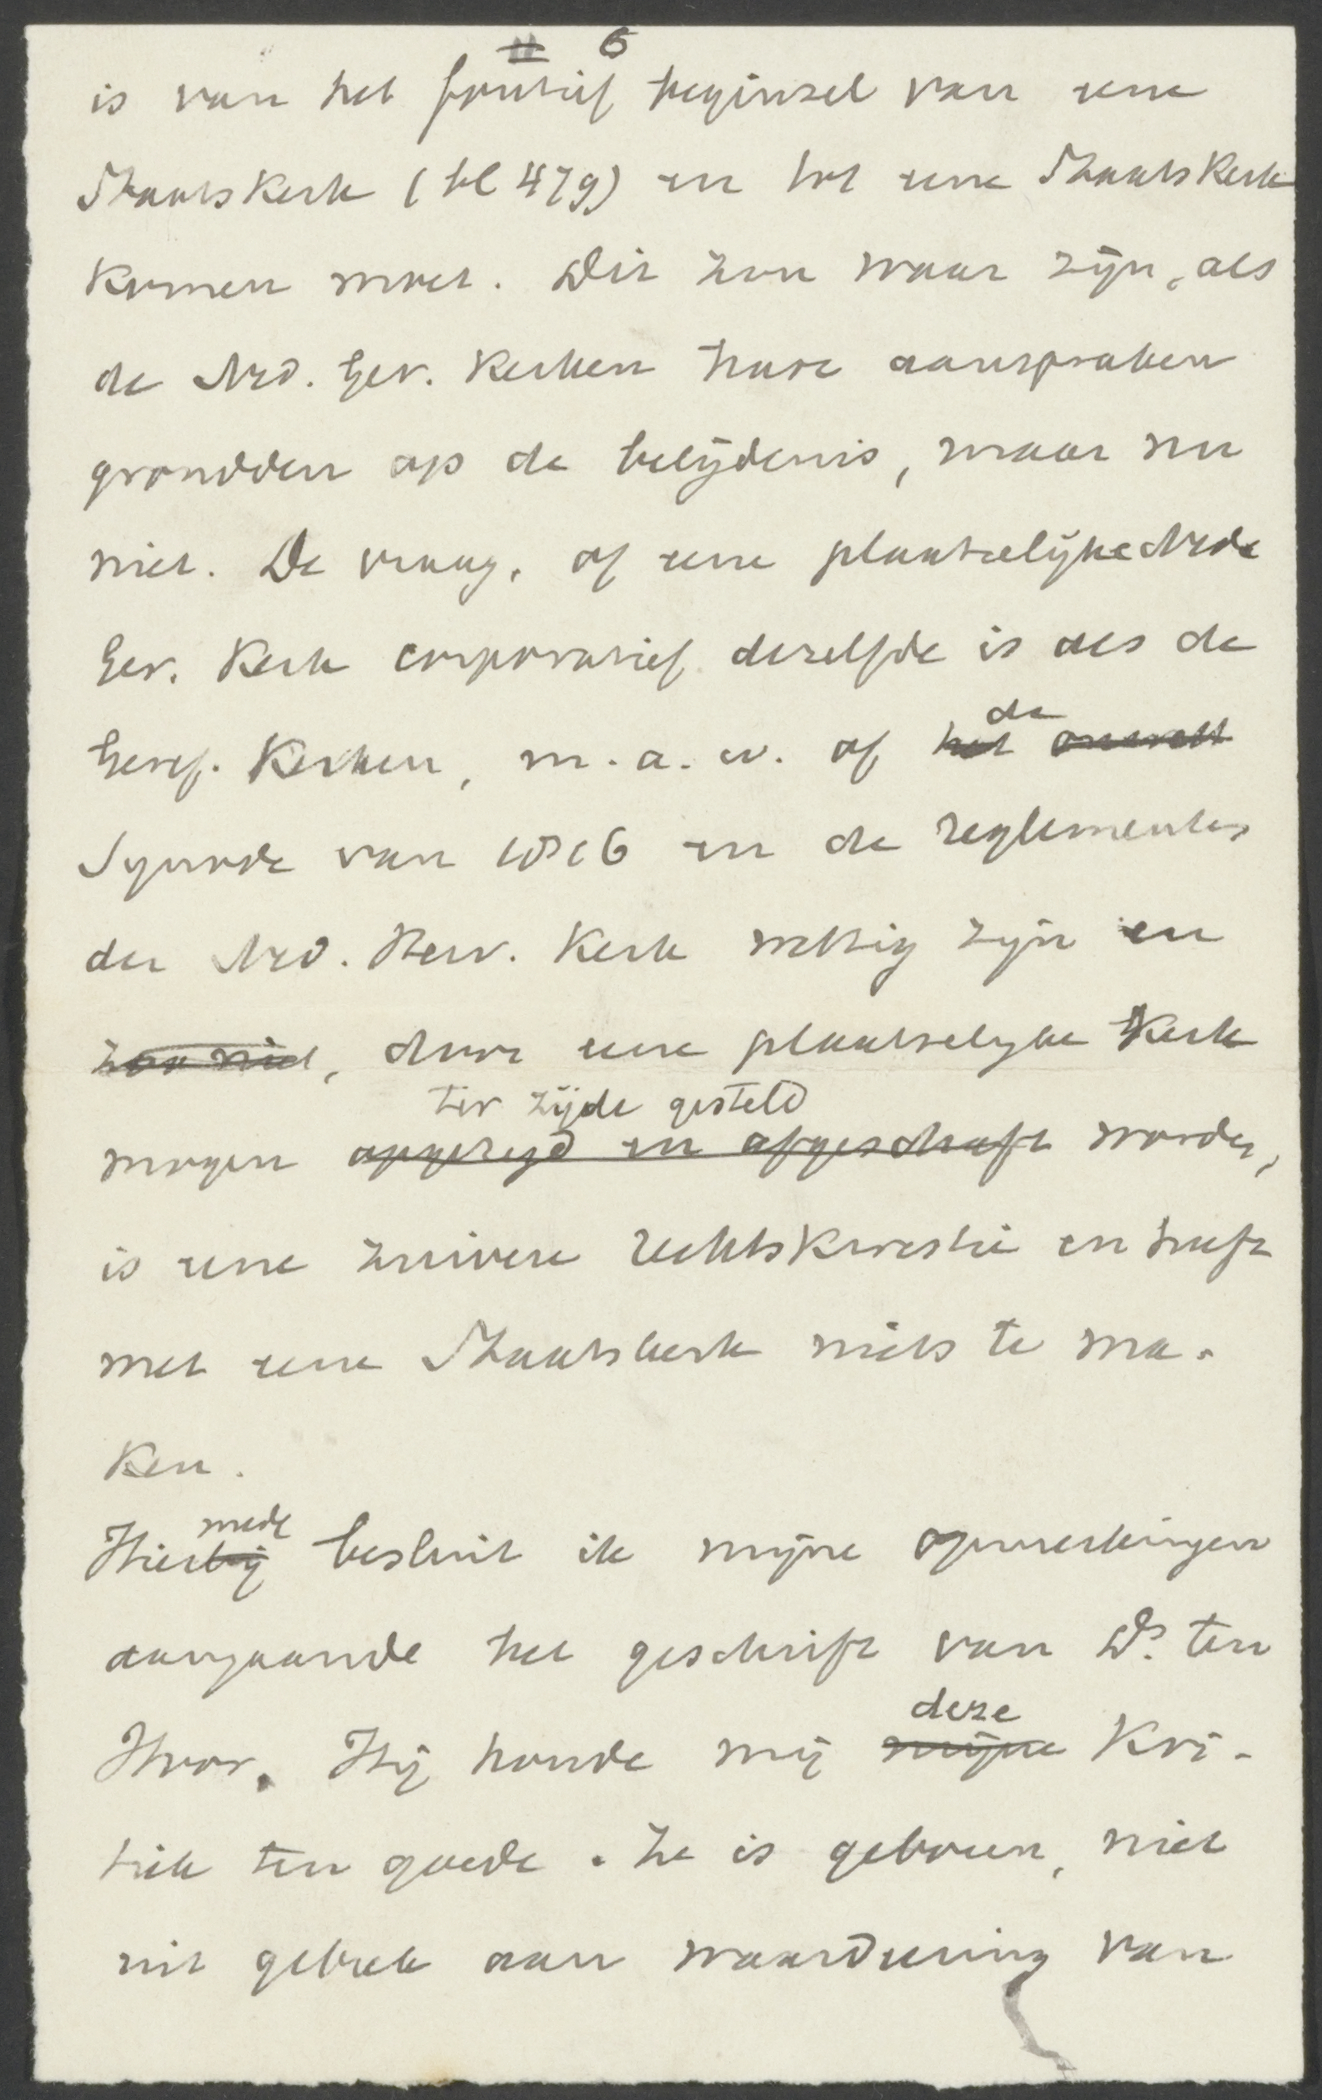 6
is van het foutief beginsel van eene
Staatskerk (bl 479) en tot eene Staatskerk
komen moet. Dit zou waar zijn, als
de Ned. Ger. Kerken hare aanspraken
grondden op de belijdenis, maar nu
niet. De vraag, of eene plaatselijke Nede
Ger. Kerk corporatief dezelfde is als de
Geref. Kerken, m.a.w. of het de
Synode van 1816 en de reglementen
der Ned. Herv. Kerk wettig zijn en
zoo niet, door eene plaatselyke Kerk
ter zijde gesteld
mogen opgezegd en afgeschaft worden,
is eene zuivere rechtskwestie en heeft
met eene Staatskerk niets te ma-
ken.
mede
Hierbij besluit ik mijne opmerkingen
aangaande het geschrift van Ds. ten
deze
Hoor. Hij houde mij mijne kri-
tiek ten goede. Ze is geboren, niet
uit gebrek aan waardeering van